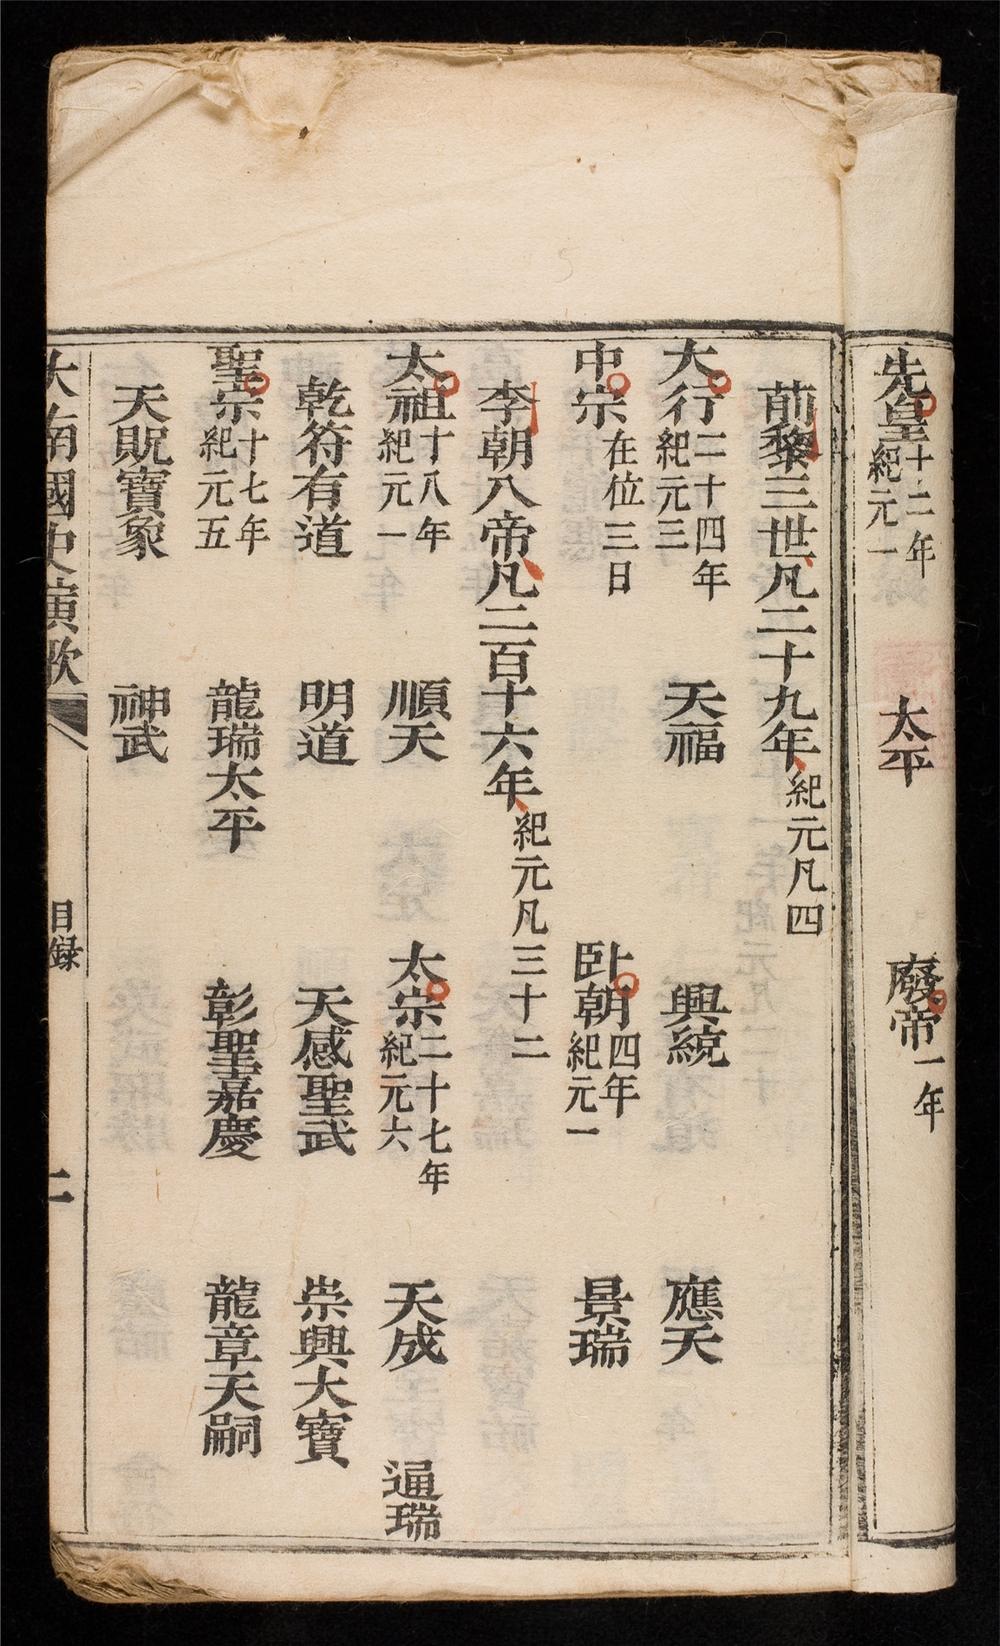 先皇十二年紀元一 太平 廢帝一年
前黎三世凡二十九年紀元凡四
大行二十四年紀元三 天福 興統 應天
中宗在位三日 臥朝四年紀元一 景瑞
李朝八帝凡二百十六年紀元凡三十二
太祖十八年紀元一 順天 太宗二十七年紀元六 天成 通瑞
乾符有道 明道 天感聖武 崇興大寶
聖宗十七年紀元五 龍瑞太平 彰聖嘉慶 龍章天嗣
天貺寶象 神武
大南國史演歌 目録 二